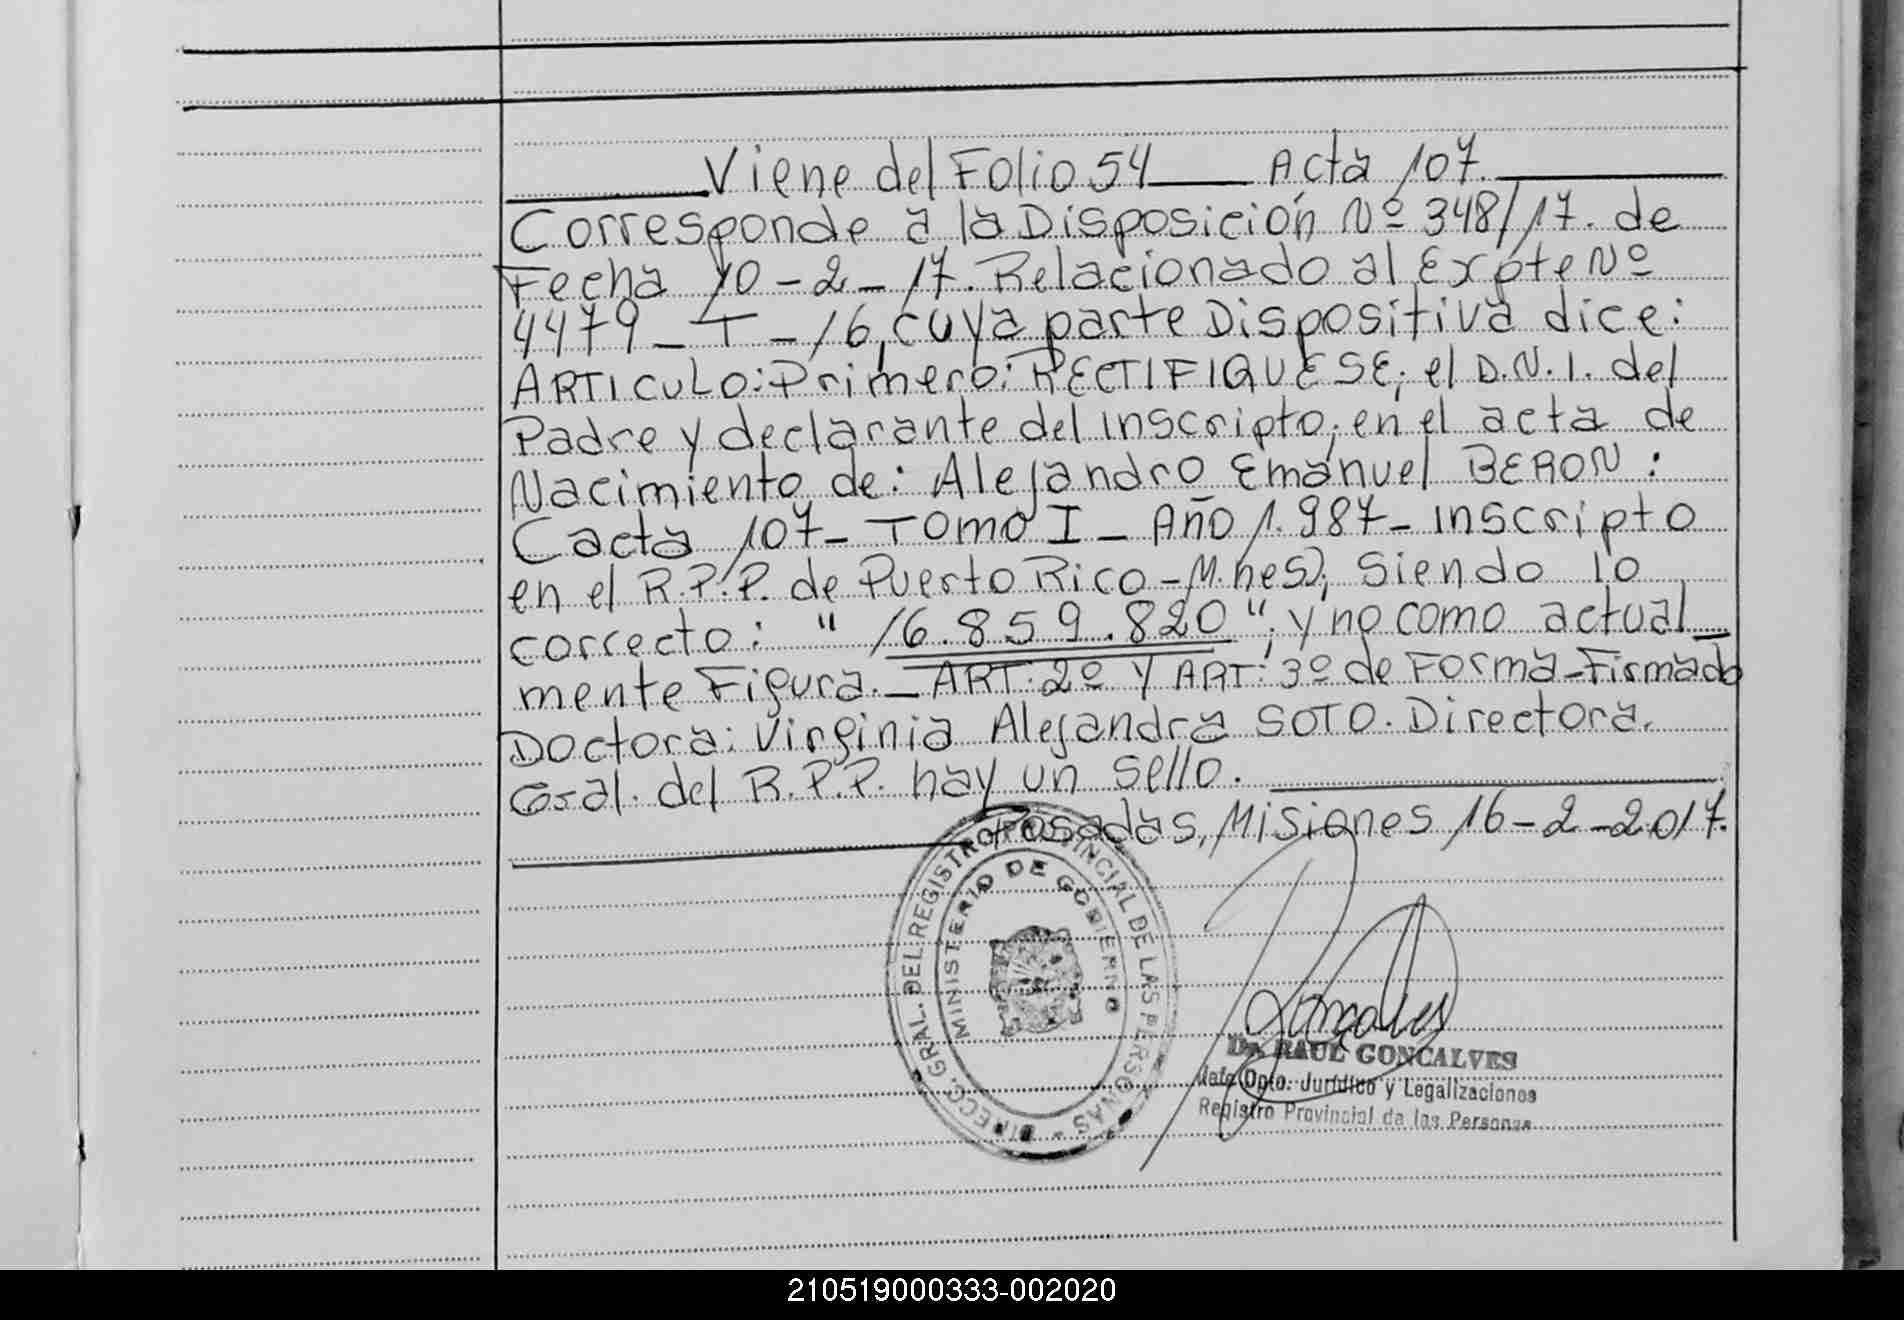 Viene del Folio 54 Acta 107.
Corresponde a la Disposición Nº 348/17. de
Fecha 10-2-17. Relacionado al Expte Nº
4479-T-16, cuya parte Dispositiva dice:
ARTICULO: Primero: RECTIFIQUESE, el D.N.I. del
Padre y declarante del inscripto, en el acta de
Nacimiento de: Alejandro Emanuel BERON:
Cacta 107- TOMO I - Año 1.987- inscripto
en el R.P.P. de Puerto Rico - M.nes), Siendo lo
correcto: " 16.859.820 "; y no como actual_
mente Figura. _ ART: 2º Y ART: 3º de Forma - Firmado
Doctora: Virginia Alejandra SOTO. Directora.
Gral. del R.P.P. hay un sello.
Posadas, Misiones 16-2-2017.
DIRECC. GRAL. DEL REGISTRO PROVINCIAL DE LAS PERSONAS
MINISTERIO DE GOBIERNO
Dr. RAUL GONCALVES
Jefe Dpto. Jurídico y Legalizaciones
Registro Provincial de las Personas
210519000333-002020